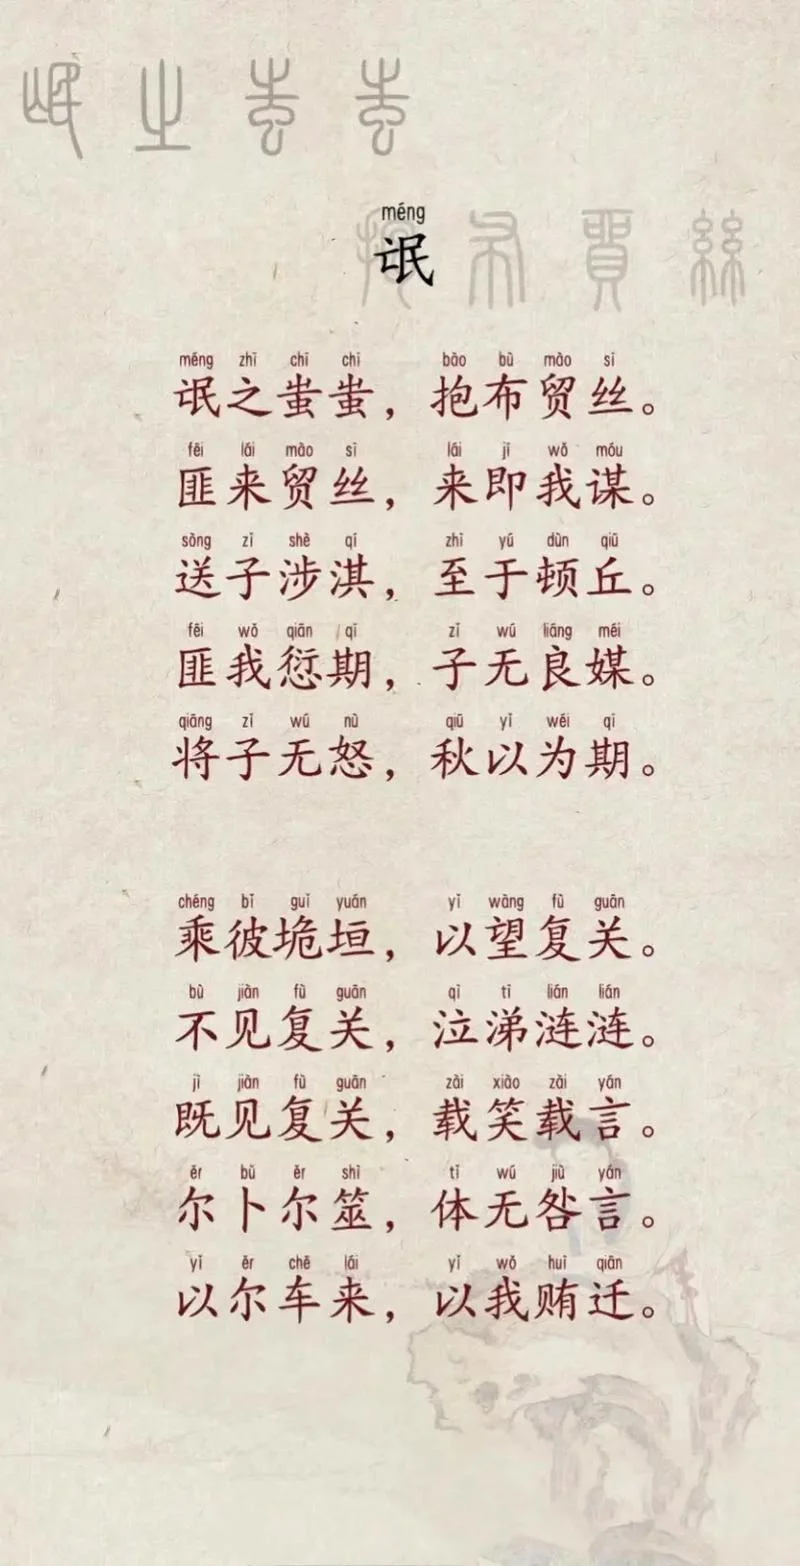 氓之蚩蚩
抱布貿絲
méng
氓
méng zhī chī chī bào bù mào sī
氓之蚩蚩，抱布贸丝。
fěi lái mào sī lái jí wǒ móu
匪来贸丝，来即我谋。
sòng zǐ shè qí zhì yú dùn qiū
送子涉淇，至于顿丘。
fěi wǒ qiān qī zǐ wú liáng méi
匪我愆期，子无良媒。
qiāng zǐ wú nù qiū yǐ wéi qī
将子无怒，秋以为期。
chéng bǐ guǐ yuán yǐ wàng fù guān
乘彼垝垣，以望复关。
bù jiàn fù guān qì tì lián lián
不见复关，泣涕涟涟。
jì jiàn fù guān zài xiào zài yán
既见复关，载笑载言。
ěr bǔ ěr shì tǐ wú jiù yán
尔卜尔筮，体无咎言。
yǐ ěr chē lái yǐ wǒ huì qiān
以尔车来，以我贿迁。